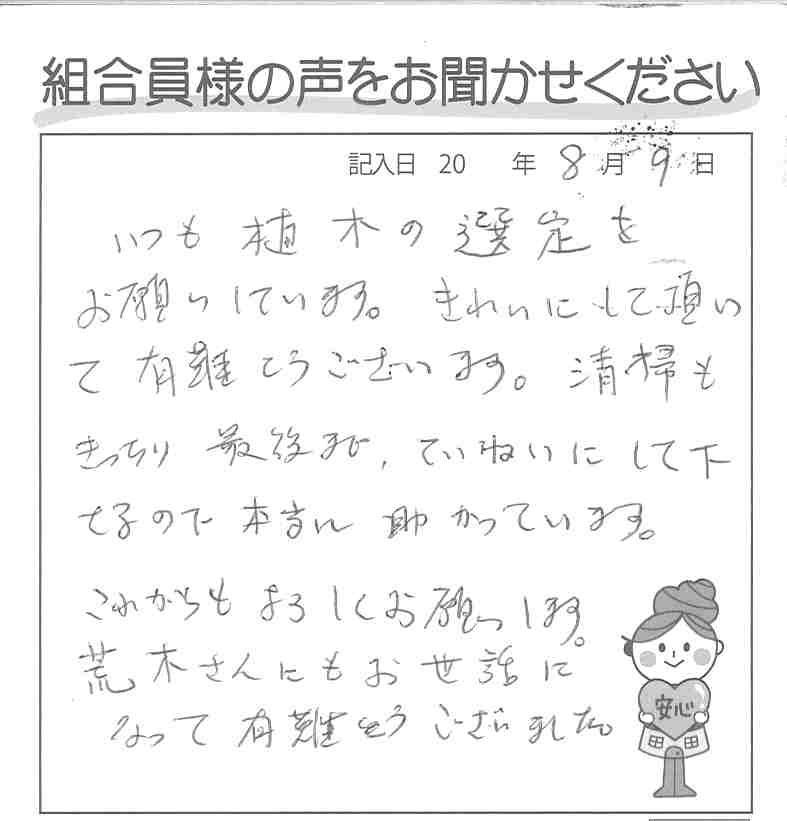 組合員様の声をお聞かせください
記入日 20 年 8月 9日
いつも 植木の選定を
お願いしています。きれいにして頂い
て有難とうございます。清掃も
きっちり 最後まで、ていねいにして下
さるので本当に助かっています。
これからもよろしくお願いします。
荒木さんにもお世話に
なって有難とうございました。
安心